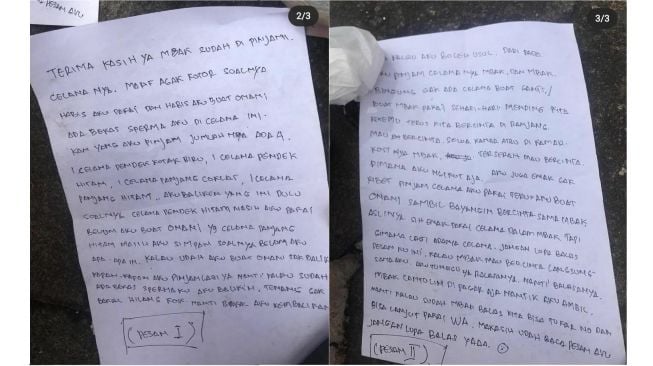 PESAM AKU
2/3
TERIMA KASIH YA MBAK SUDAH DI PINJAMI.
CELANA NYA. MAAF AGAK KOTOR SOALNYA
HABIS AKU PAKAI DAN HABIS AKU BUAT ONANI
ADA BEKAS SPERMA AKU DI CELANA INI.
KAN YANG AKU PINJAM JUMLAH NYA ADA 4.
1 CELANA PENDEK KOTAK BIRU, 1 CELANA PENDEK
HITAM, 1 CELANA PANJANG COKLAT, 1 CELANA
PANJANG HITAM. AKU BALIKIN YANG INI DULU
SOALNYA CELANA PENDEK HITAM MASIH AKU PAKAI
BELUM AKU BUAT ONANI YG CELANA PANJANG
HITAM MASIH AKU SIMPAN SOALNYA BELOM AKU
APA-APA IN. KALAU UDAH AKU BUAT ONANI GAK BALIK
KAPAN-KAPAN AKU PINJAM LAGI YA NANTI KALAU SUDAH
ADA BEKAS SPERMAKU AKU BALIKIN, TENANG GAK
BAKAL HILANG KOK NANTI BAKAL AKU KEMBALIKAN
(PESAM I)
3/3
KALAU AKU BOLEH USUL. DARI PADA
PINJAM CELANA NYA MBAK, DAN MBAK
BINGUNG GAK ADA CELANA BUAT GANTI/
BUAT MBAK PAKAI SEHARI-HARI MENDING KITA
KETEMU TERUS KITA BERCINTA DI RANJANG
MAU BERCINTA. SEWA KAMAR ATAU DI KAMAR
KOST NYA MBAK, TERSERAH MAU BERCINTA
DIMANA AKU NGIKUT AJA. AKU JUGA ENAK GAK
RIBET PINJAM CELANA AKU PAKAI TERUS AKU BUAT
ONANI SAMBIL BAYANGIN BERCINTA SAMA MBAK
ASLINYA SIH ENAK PAKAI CELANA DALAM MBAK TAPI
GIMANA LAGI ADANYA CELANA. JANGAN LUPA BALAS
PESAM KU INI. KALAU MBAK MAU BERCINTA LANGSUNG
SAMA AKU. AKU TUNGGU YA BALASANYA. NANTI BALASANYA
MBAK CANTOLIN DI PAGAR AJA NANTIK AKU AMBIL.
NANTI KALAU SUDAH MBAK BALAS KITA BISA TUKAR NO DAN
BISA LANJUT PAKAI WA. MAKASIH UDAH BACA PESAM AKU
JANGAN LUPA BALAS YADA.
(PESAM II)